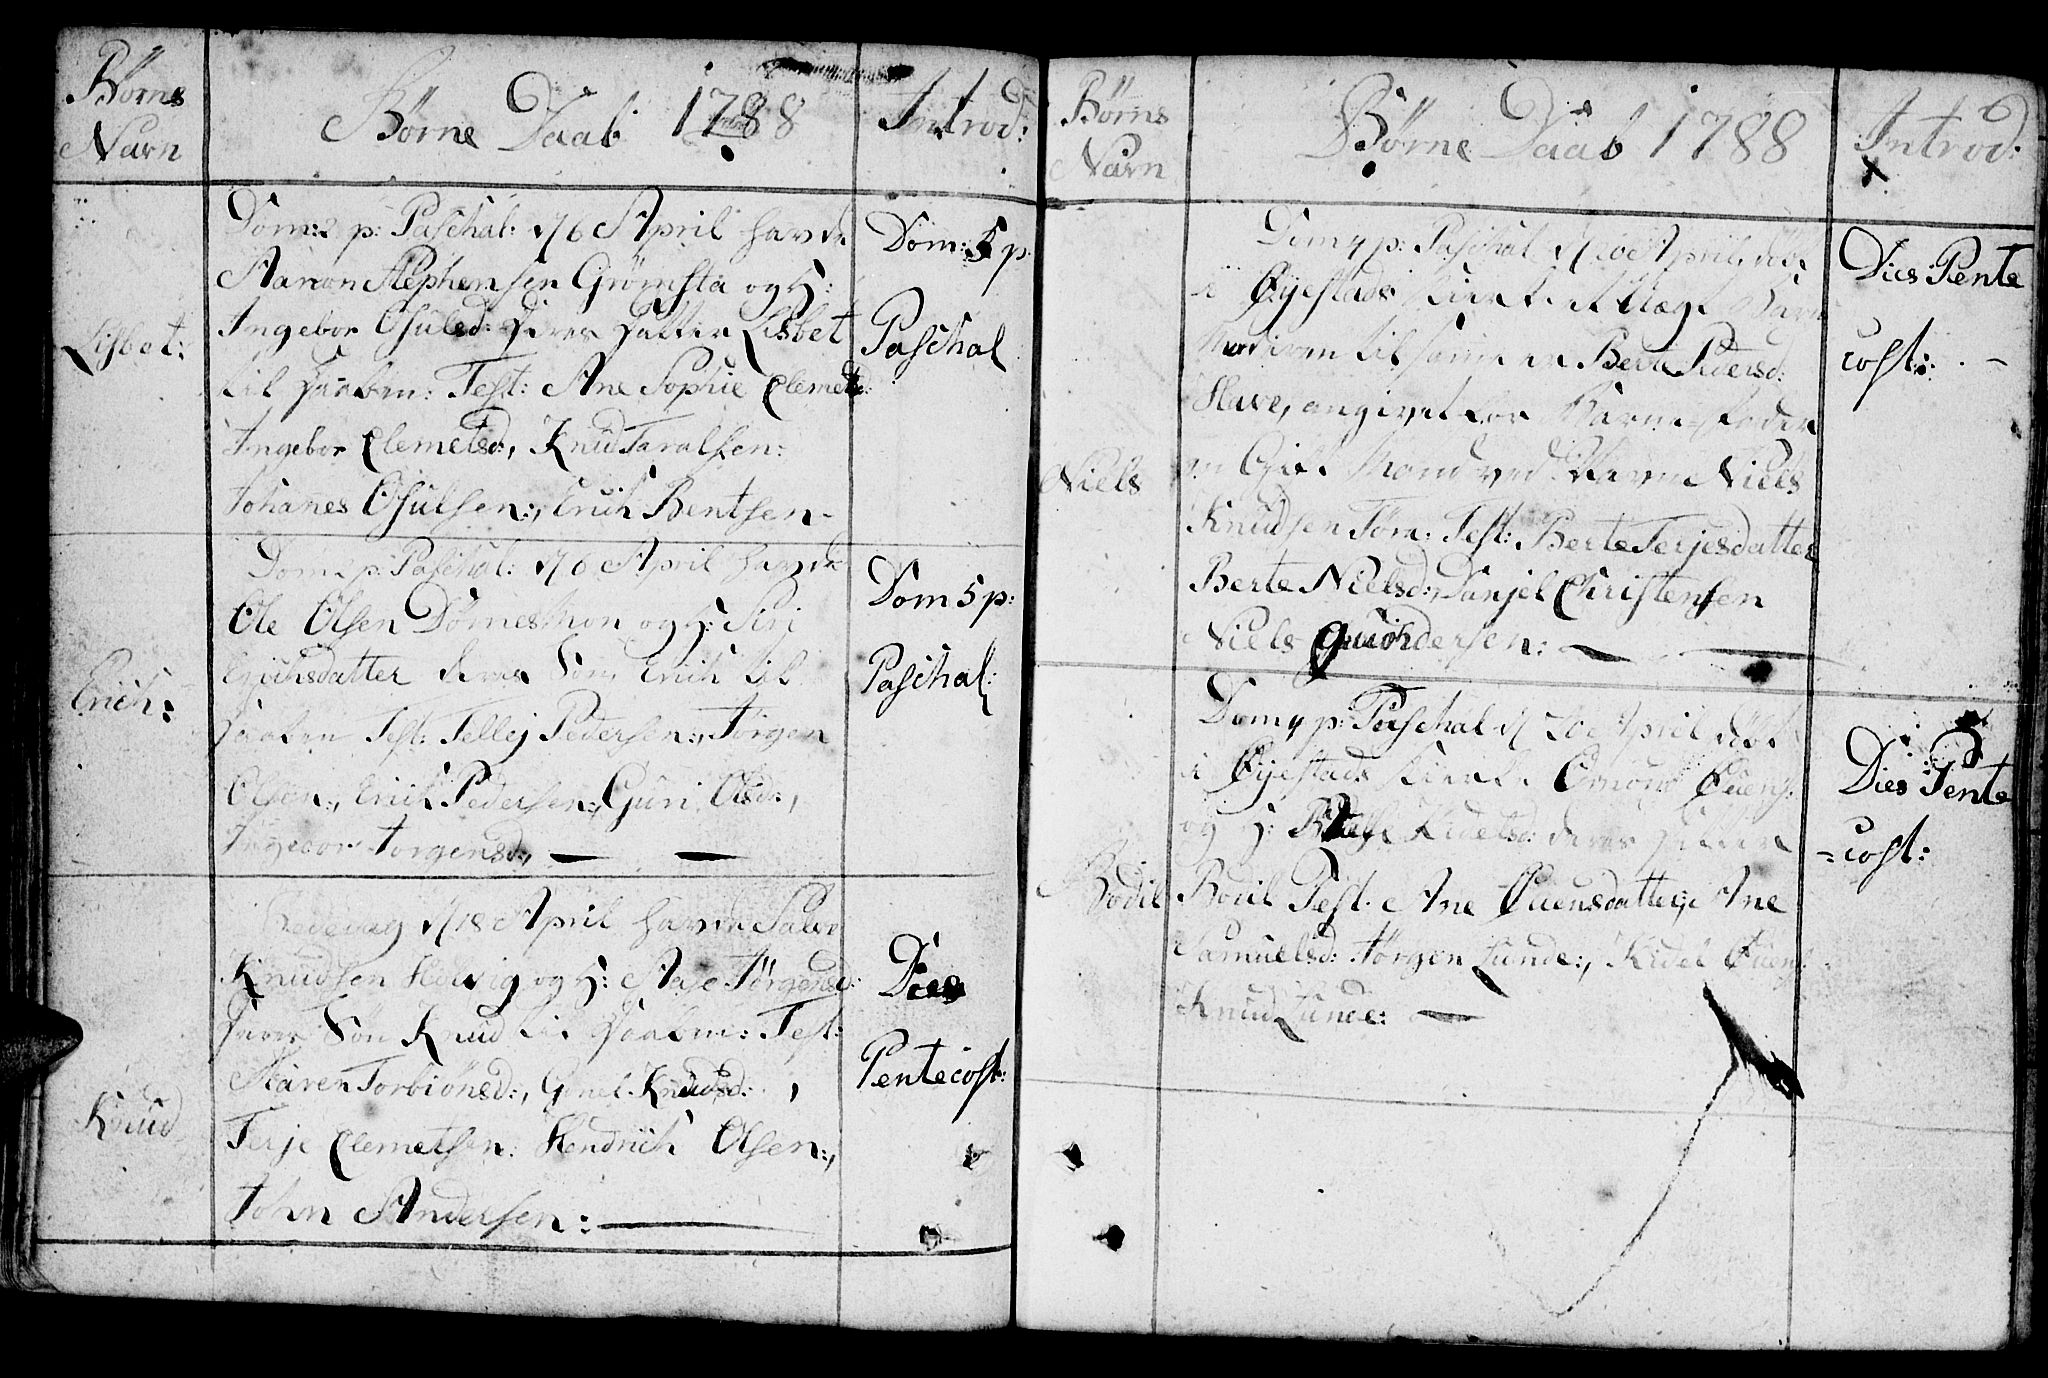 Børns
Navn
Børne Daab 1788
Introd:
Lisbet:
Dom: 2 p: Paschal: d/6 April havde
Aanon Stephensen Grømsta og H:
Ingebor Osulsd: deres Datter Lisbet
til Daaben: Test: Ane Sophie Clemetsd:
Ingebor Clemetsd:, Knud Taralsen:
Johanes Osulsen:, Erich Bentsen -
Dom: 5 p:
Paschal
Erich:
Dom 2 p: Paschal: d/6 April havde
Ole Olsen Dømesmon og H: Siri
Erichsdatter deres Søn Erich til
Daaben Test: Tellej Pedersen:, Jørgen
Olsen:, Erich Pedersen:, Guri Olsd:,
Ingebor Jørgensd:,
Dom 5 p:
Paschal:
Knud
Bededag d/18 April havde Salve
Knudsen og H: Aase Jørgensd:
deres Søn Knud til Daaben: Test:
Maren Torbiønsd:, Gunel Knudsd: ,
Terje Clemetsen: Hendrich Olsen:,
John Andersen:
Dies
Pentecost:
Børns
Navn
Børne Daab 1788
Introd:
Niels
Dom 4 p: Paschal d/20 April, døbt
i Øyestads Kirke et Uægte Barn
Moderen til samme er Berte Pedersd:
angivet for Barne-Fader
en Gift Mand ved Navn Niels
Knudsen Tøm: Test: Berte Terjesdatter
Berte Nielsd:, Danjel Christensen
Niels Gundersen:
Dies: Pente
cost:. -
Bodil
Dom 4 p: Paschal d/20 April døbt
i Øyestads Kirke Omund Øuens:
og H: Kidelsd: deres Datter
Bodil Test. Ane Øuensdatter, Ane
Samuelsd: Jørgen Lunde:, Kidel Øuens:
Knud Lunde:
Dies Pente
=cost: